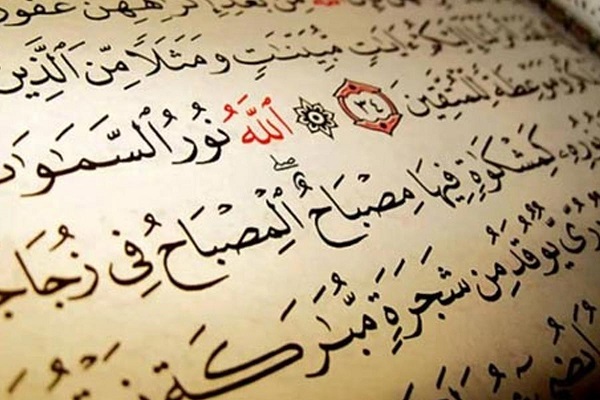 مِنۢ بَعْدِ إِكْرَٰهِهِنَّ غَفُور
إِلَيْكُمْ ءَايَٰتٍ مُّبَيِّنَٰتٍ وَمَثَلًا مِّنَ ٱلَّذِينَ
وَمَوْعِظَةً لِّلْمُتَّقِينَ ٣٤ ۞ ٱللَّهُ نُورُ ٱلسَّمَٰوَٰ
نُورِهِۦ كَمِشْكَوٰةٍ فِيهَا مِصْبَاحٌ ۖ ٱلْمِصْبَاحُ فِى زُجَاجَ
دُرِّىٌّ يُوقَدُ مِن شَجَرَةٍ مُّبَٰرَكَةٍ